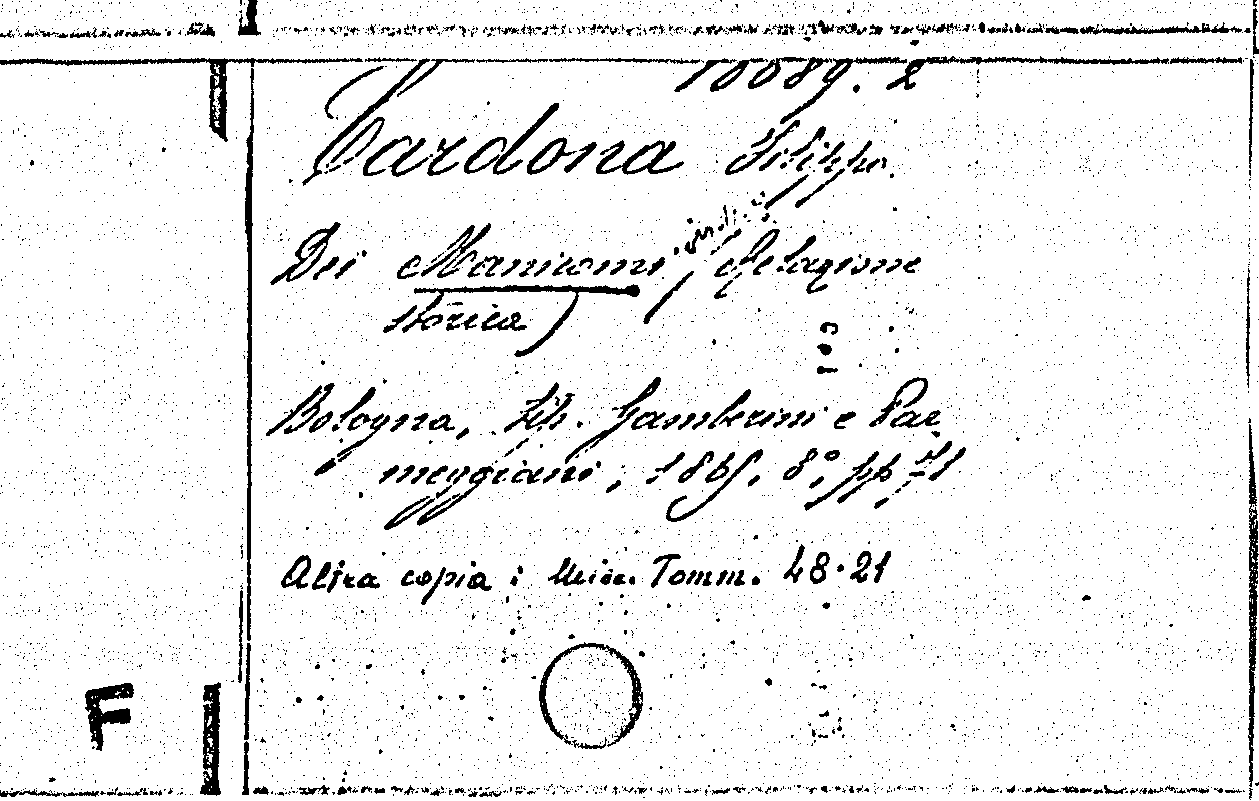 10089. 2
Cardona Filippo
Dei Manicomi, Relazione
storica
Bologna, Tip. Gamberini e Par
meggiani, 1865. 8°, pp
Altra copia: Misc. Tomm. 48.21
F